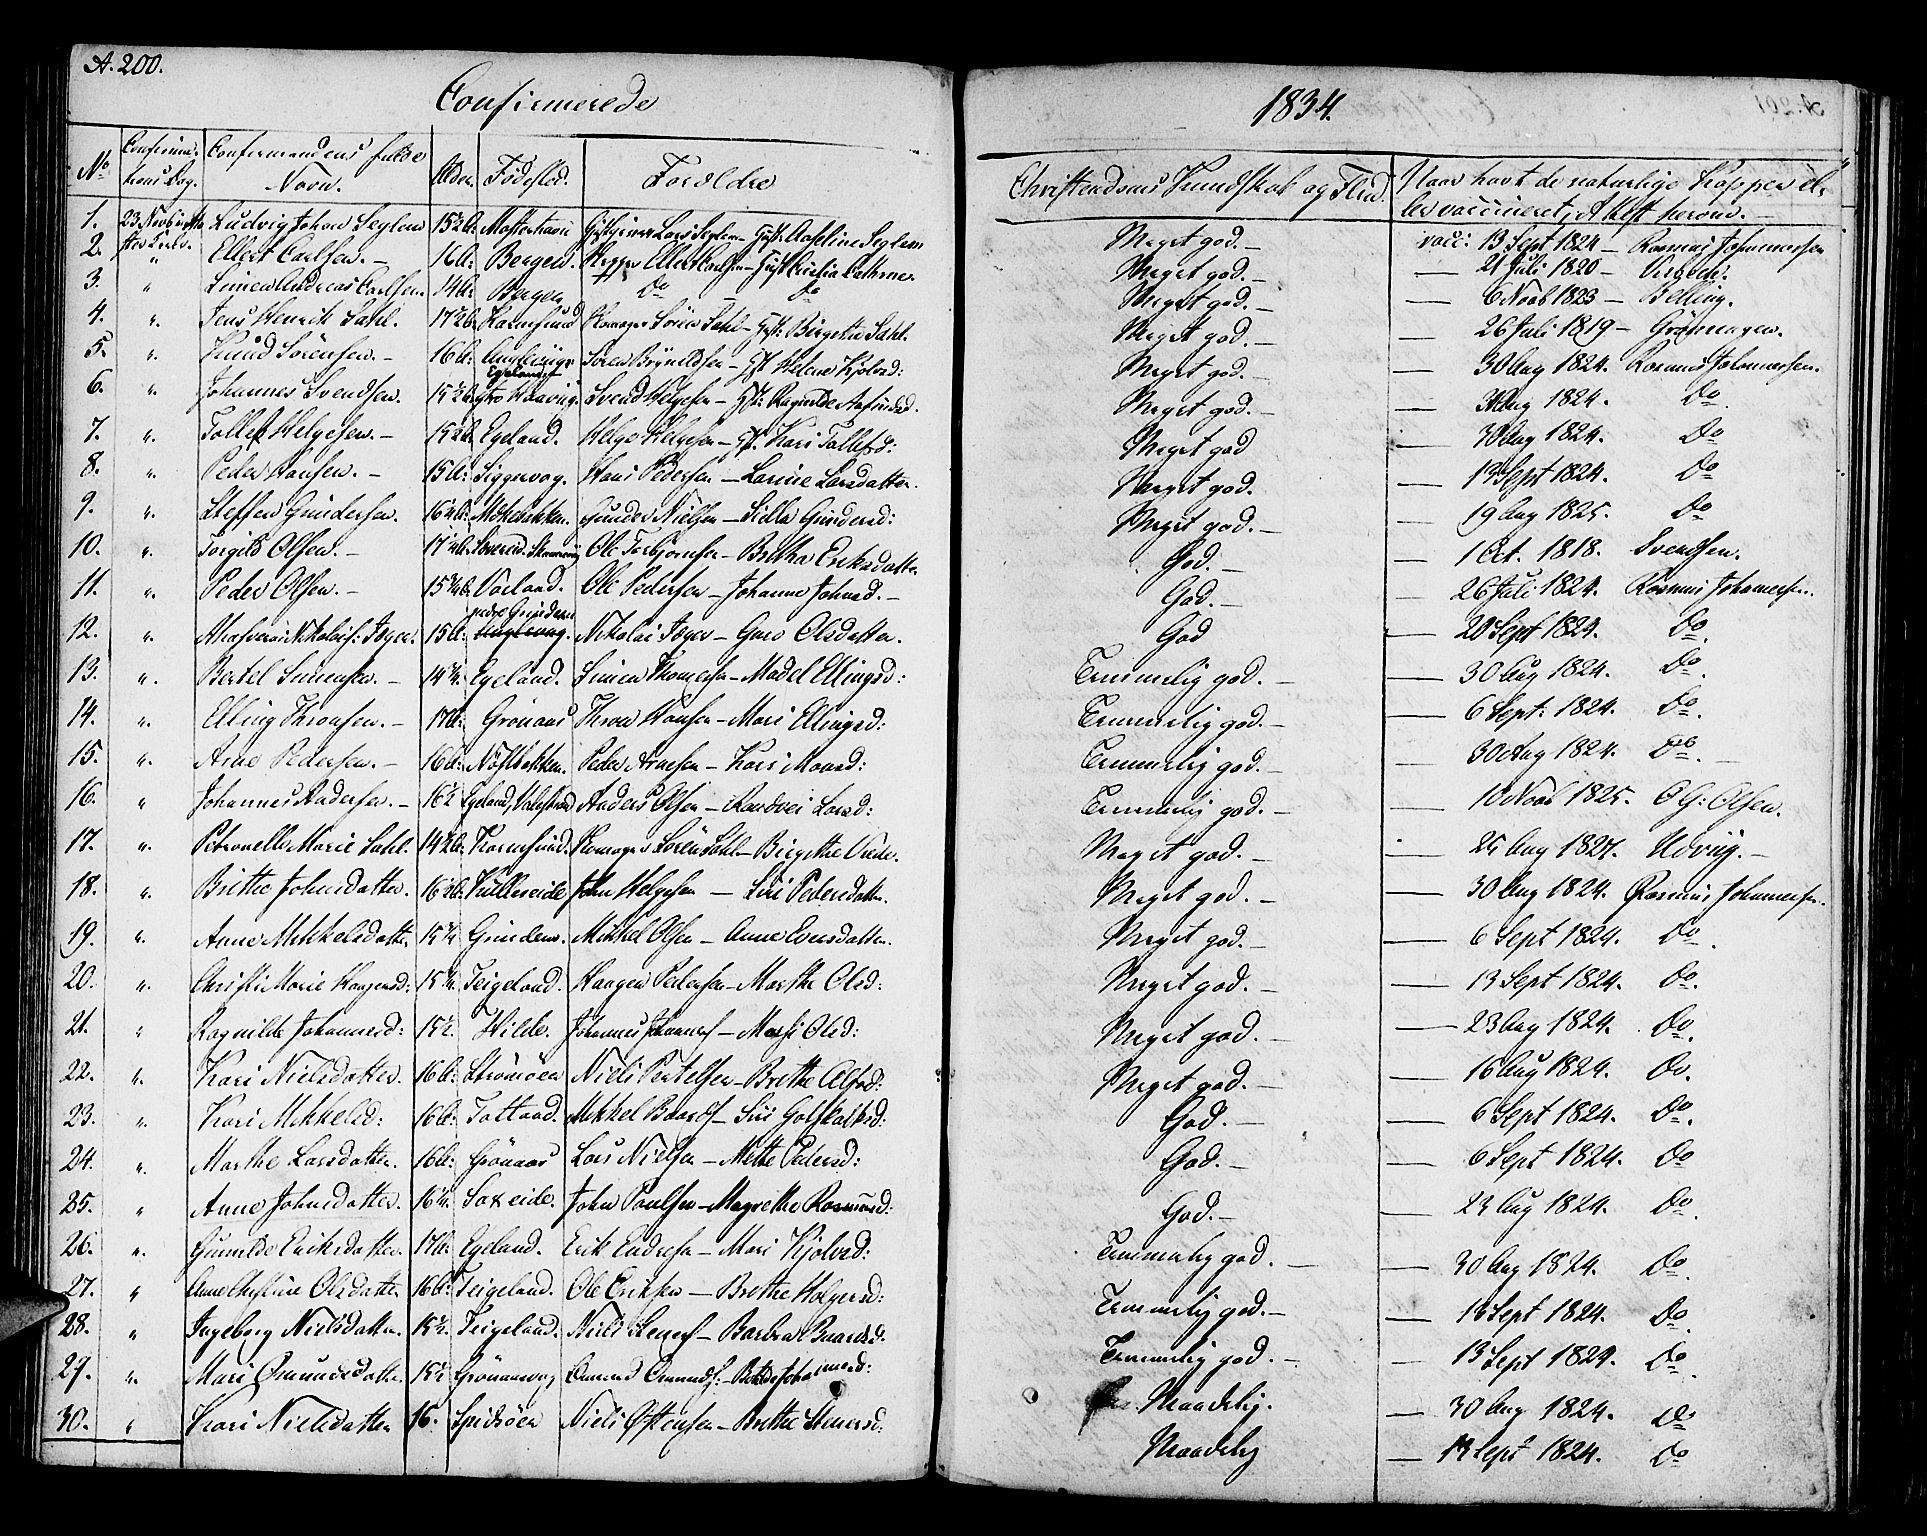 A. 200.
Confirmerede
1834.
No Confirma-tions Dag. Confirmandens fulde Navn. Alder. Fødested. Forældre Christendoms Kundskab og Flid. Naar havt de naturlige Kopper el-ler vaccineret, Attest herom.
1. 23 Ludvig Johan Seglem 15½ Mosterhavn Lars Seglem - Aaseline Seglem Meget god. - vacc: 13 Sept 1824 - Rasmus Johannessen
2. " Ellert Carlsen. - 16 Bergen. Ellert Carlsen - Meget god. - 21 Juli 1820 -
3. " Simen Andreas Carlsen. 14 Bergen Do Do Meget god. - 6 Novb 1823 - Belling.
4. " Jens Henrik Dahl. 17½ Karmsund Sören Dahl - Birgette Dahl. Meget god. - 26 Juli 1819 - Grönningen.
5. " Knud Sörensen. - 16 Sören Brynildsen - Helene Kjolvd: Meget god. - 30 Aug 1824. Rasmus Johannessen.
6. " Johannes Svendsen. 15½ Svend Helgesen - Ragnilde Meget god. - Aug 1824. Do
7. " Tollef Helgesen. - 15½ Egeland. Helge Helgesen - Kari Tollefsd: Meget god 30 Aug 1824. Do
8. " Peder Hansen. - 15 Siggervog. Hans Pedersen - Larine Larsdatter. Meget god. 13 Sept 1824. Do
9. " Steffen Gundersen. 16¼ Gunder Nielsen - Siella Gundersd: Meget god. - 19 Aug 1825. Do
10. " Torgils Olsen. - 17¼ Ole Torbjornsen - Brithe Eriksdatter God. - 1 Oct. 1818. Svendsen.
11. " Peder Olsen. - 15¾ Vorland. Ole Pedersen - Johanne Johnsd. - God. - 26 Juli 1824. Rasmus Johannessen.
12. " 15 Nikolai Jæger - Guro Olsdatter. God 20 Sept 1824. Do
13. " Bertel Simensen. - 14¾ Egeland. Simen Thomesen - Madel Ellingsd: Temmelig god. - 30 Aug 1824. Do
14. " Elling Thronsen. - 17 Grönaas Thron Hansen - Mari Ellingsd: Temmelig god. - 6 Sept: 1824. Do
15. " Arne Pedersen. - 16 Peder Arnesen - Kari Monsd: Temmelig god. - 30 Aug 1824. Do
16. " Johannes Andersen. - 16½ Egeland, Anders Olsen - Randvei Larsd: Temmelig god. - 10 Novb 1825. O G: Olsen.
17. " Petronelle Marie Dahl. 14½ Karmsund. Sören Dahl - Birgitte Meget god. - 25 Aug 1827. -
18. " Brithe Johnsdatter. 16½ Kullereide John Helgesen - Siri Pedersdatter. Meget god. - 30 Aug 1824. Rasmus Johannessen.
19. " Anne Mikkelsdatter 15¼ Grindem. Mikkel Olsen - Anne Eversdatter. Meget god. - 6 Sept 1824. Do
20. " Christi Marie Haagensd: 15¼ Teigeland. Haagen Pedersen - Marthe Olsd: Meget god. - 13 Sept 1824. Do
21. " Ragnilde Johannesd: 15½ Hilde. Johannes Johannesf - Marthe Olsd: Meget god. - 23 Aug 1824. Do
22. " Kari Nielsdatter. 16 Strömöen Niels Bertelsen - Brethe Meget god. - 16 Aug 1824. Do.
23. " Kari Mikkelsd: 16 Totland. Mikkel Baardsf - Siri Gotskalksd: God. - 6 Sept 1824. Do
24. " Marthe Larsdatter. 16 Grönaas Lars Nielsen - Mette Pedersd: God. - 6 Sept 1824. Do
25. " Anne Johnsdatter. 16¼ Saxeide. John Poulsen - Magrethe Rasmusd: God. - 23 Aug 1824. Do
26. " Gunnilde Eriksdatter 17 Egeland. Erik Endresen - Mari Kjolvsd: Temmelig god. - 30 Aug 1824. Do
27. " Anne Christine Olsdatter 16 Teigeland. Ole Eriksen - Brethe Holgersd: Temmelig god. - 13 Sept 1824. Do
28. " Ingeborg Nielsdatter. 15½ Teigeland. Niels - Barbra Baardsd. Temmelig god. - 13 Sept 1824. Do
29. " Mari Omundsdatter 15½ Grönaasvog Omund Omundsf: - Johannesd: Maadelig. 30 Aug 1824. Do
30. " Kari Nielsdatter 16. Spidsöen Niels Östensen - Brethe Steinersd: Maadelig 13 Sept 1824. Do